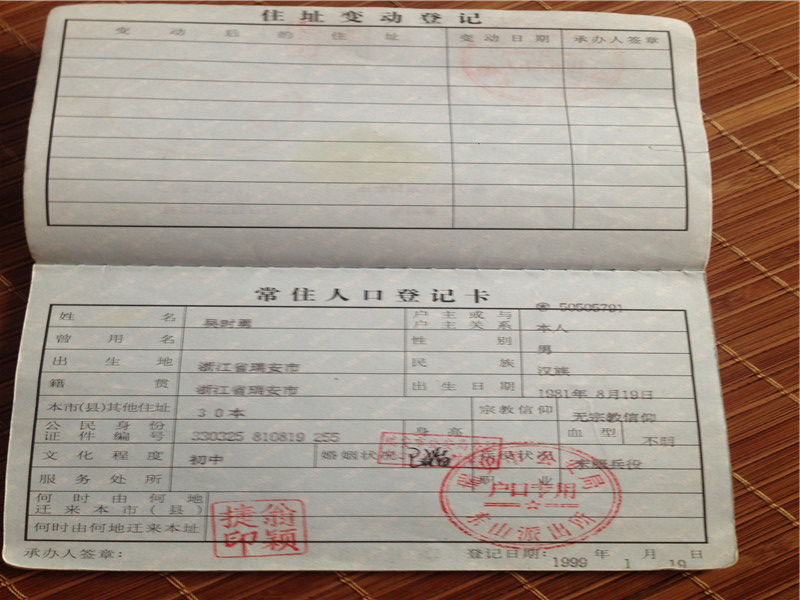 住址变动登记
变动后的住址 变动日期 承办人签章
常住人口登记卡
50505791
姓名 吴时勇 户主或与户主关系 本人
曾用名 性别 男
出生地 浙江省瑞安市 民族 汉族
籍贯 浙江省瑞安市 出生日期 1981年8月19日
本市(县)其他住址 30本 宗教信仰 无宗教信仰
公民身份证件编号 330325 810819 255 身高 血型 不明
文化程度 初中 婚姻状况 已婚 兵役状况 未服兵役
服务处所 职业
何时由何地迁来本市(县)
何时由何地迁来本址
户口专用
东山派出所
翁颖捷印
承办人签章: 登记日期: 1999年1月19日